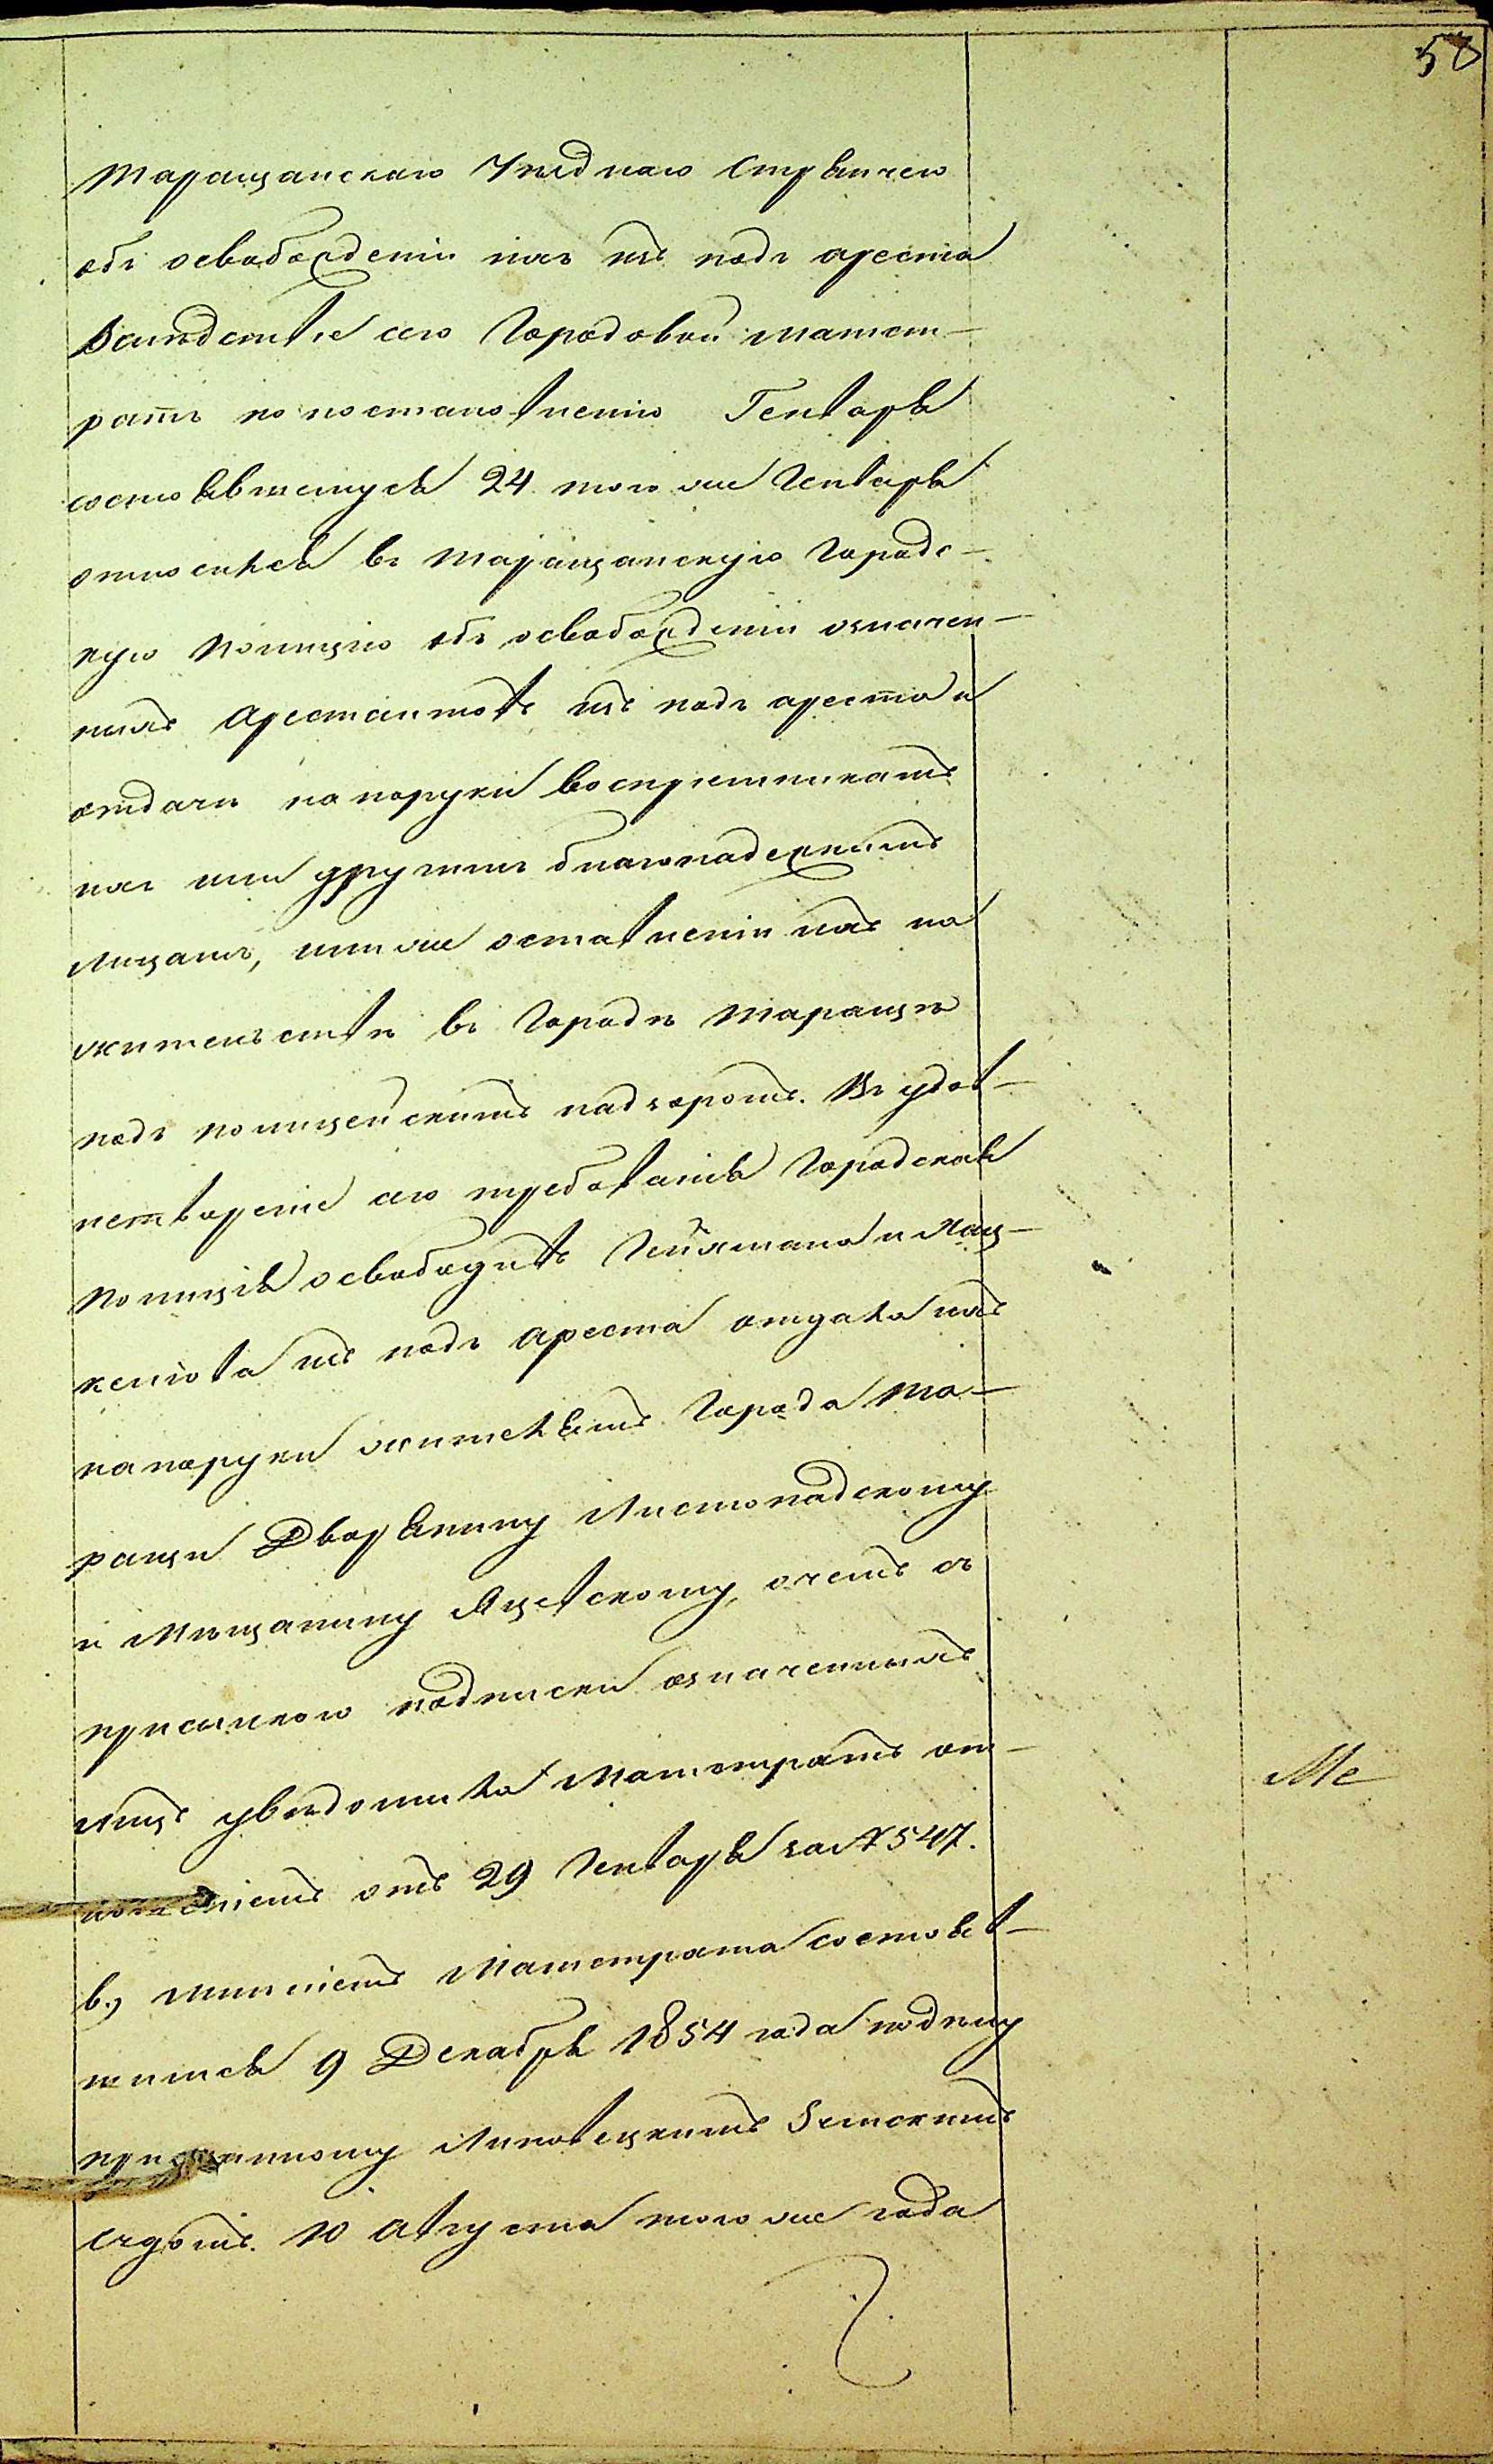 58
Таращанскаго Уѣзднаго Стряпчего
объ освобожденіи ихъ изъ подъ ареста
Вслѣдствіе сего Городовой магист-
ратъ по постановленію Генваря
состоявшемуся 24 того же Генваря
относился въ Таращанскую Городс-
кую Полицію объ освобожденіи означен-
ныхъ Арестантовъ изъ подъ ареста и
отдачи на поруки воспріемникамъ
ихъ или другимъ благонадежнымъ
лицамъ, или же оставленіи ихъ на
жительствѣ въ городѣ Таращѣ
подъ полицейскимъ надзоромъ. Въ удов-
летвореніе сего требованія Городская
Полиція освободивъ Гейхмана и
изъ подъ ареста отдала ихъ
на поруки жителямъ города Та-
ращи Дворянину Листопадскому
и Мѣщанину Яцевскому, о чемъ съ
присылкою подписки означенныхъ
лицъ увѣдомила Магистратъ от-
ношеніемъ отъ 29 Генваря за № 547.
в.) Мнѣніемъ Магистрата состояв-
шимся 9 Декабря 1854 года по дѣлу
присланному Липовецкимъ Земскимъ
Судомъ 10 Августа того же года
Ме